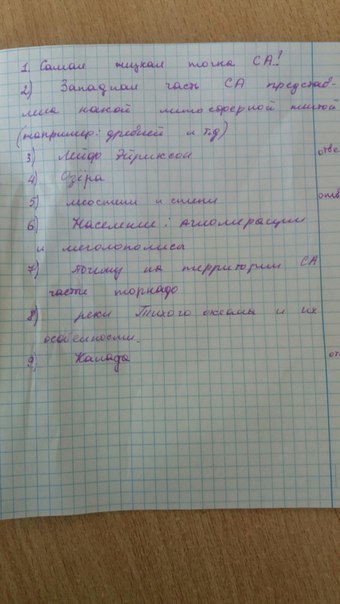 1. Самая низкая точка СА?
2) Западная часть СА представ-
лена какой литосферной плитой
(например: древней и т.д)
3) Лейф Эйриксон
отве
4) Озёра
5) и степи
отв
6) Население: Агломерации
и мегалополисы
7) Почему на территории СА
часты торнадо
8) реки Тихого океана и их
особенности.
9) Канада
от